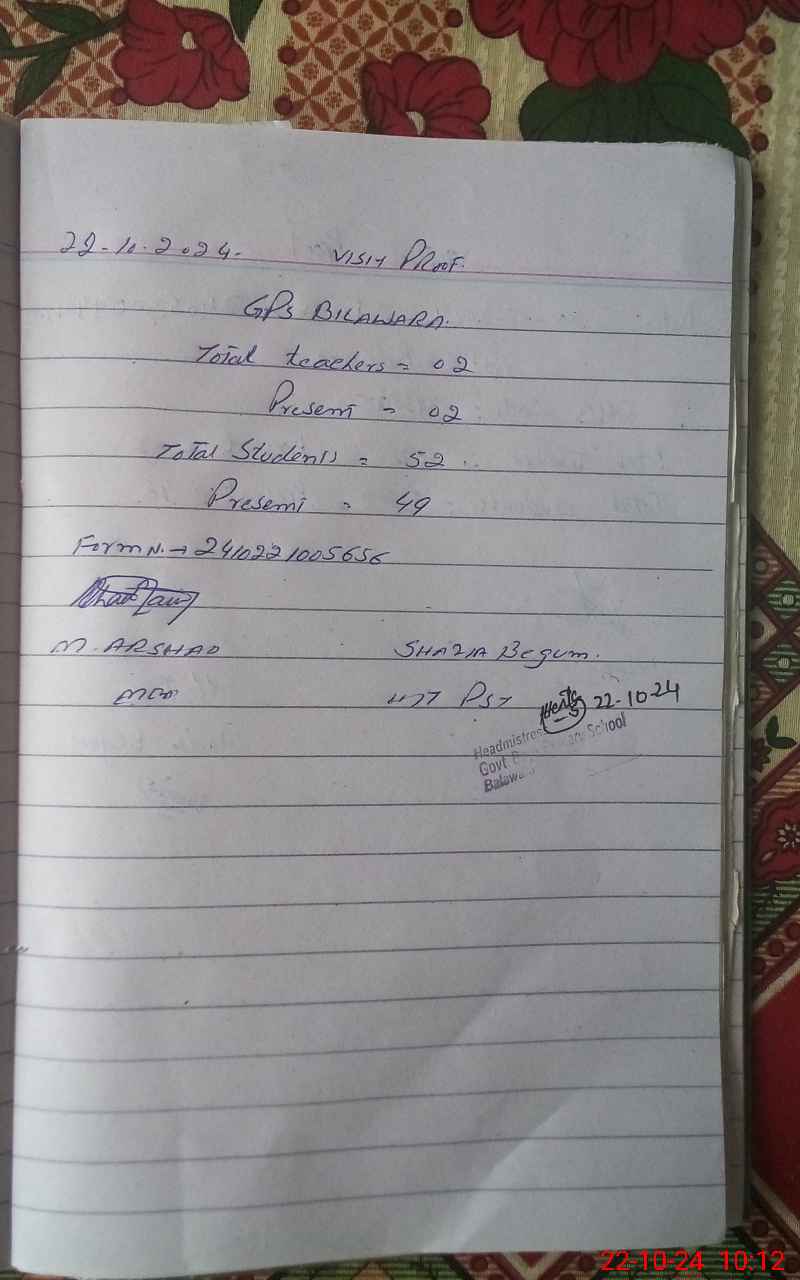 22-10-2024. VISIT PROOF.
GPS BILAWARA.
Total teachers = 02
Present = 02
Total Students = 52
Present = 49
Form N. → 2410221005656
M. ARSHAD SHAZIA Begum.
PST 22-10-24
Headmistress
Govt. School
22-10-24 10:12